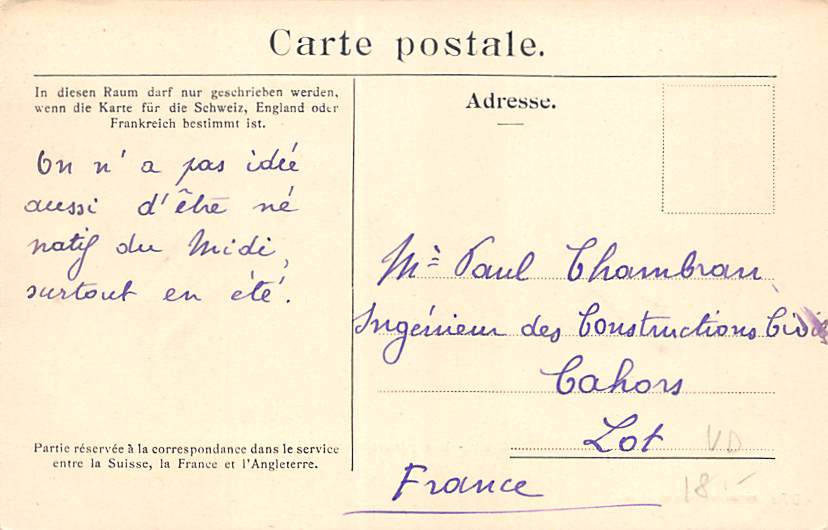 Carte postale.
In diesen Raum darf nur geschrieben werden,
wenn die Karte für die Schweiz, England oder
Frankreich bestimmt ist.
Adresse.
On n'a pas idée
aussi d'être né
natif du Midi,
surtout en été.
Mr Paul Chambran
Ingénieur des Constructions Civiles
Cahors
Lot
France
Partie réservée à la correspondance dans le service
entre la Suisse, la France et l'Angleterre.
VD
18